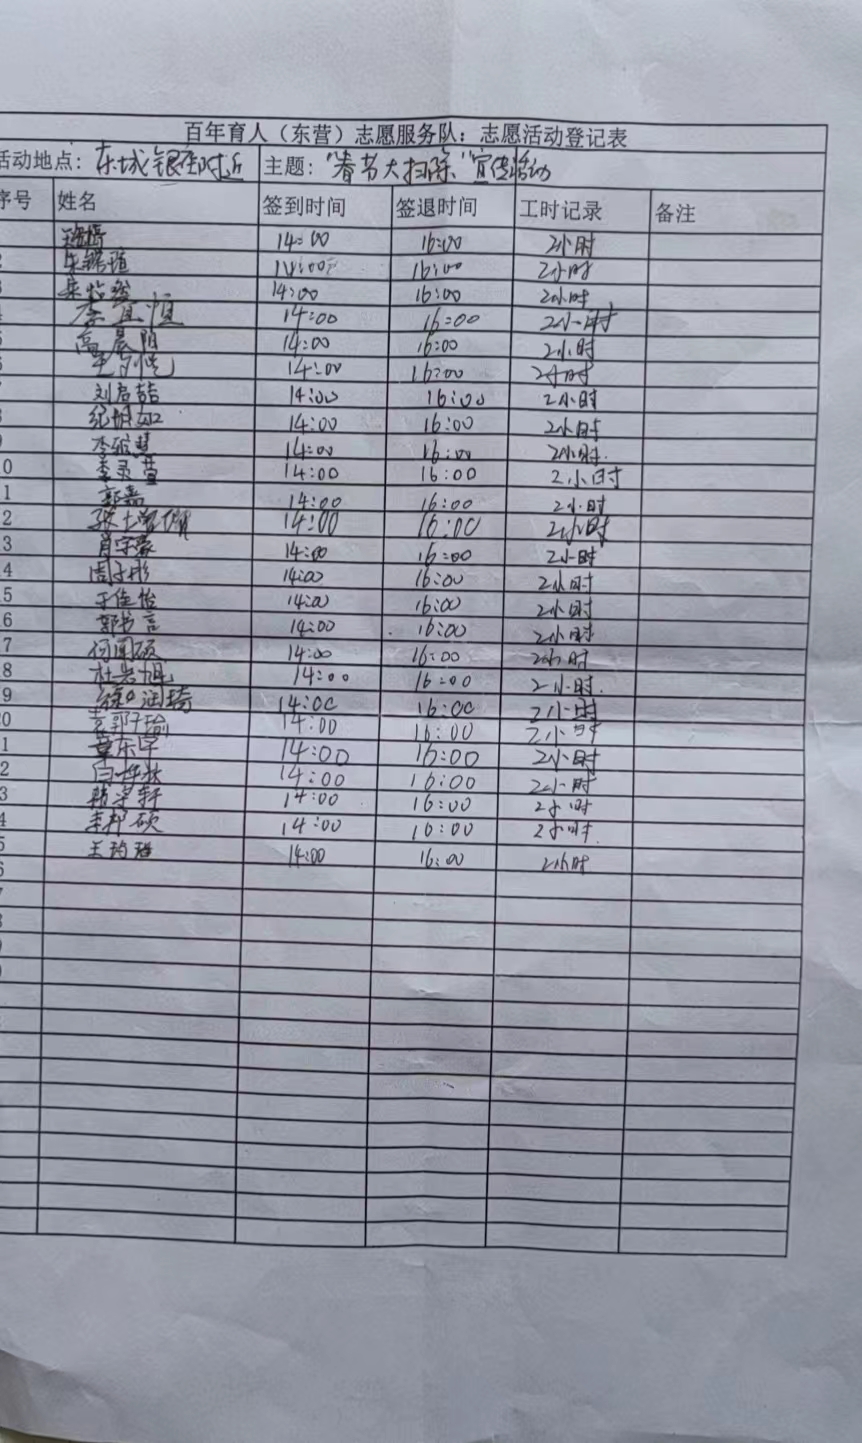 百年育人（东营）志愿服务队：志愿活动登记表
活动地点：东城银座附近 主题："春节大扫除"宣传活动
序号 姓名 签到时间 签退时间 工时记录 备注
14:00 16:00 2小时
2 14:00 16:00 2小时
3 14:00 16:00 2小时
4 李宜恒 14:00 16:00 2小时
5 高晨阳 14:00 16:00 2小时
6 14:00 16:00 2小时
7 刘启喆 14:00 16:00 2小时
8 纪明如 14:00 16:00 2小时
9 14:00 16:00 2小时.
0 李灵萱 14:00 16:00 2小时
1 郭嘉 14:00 16:00 2小时
2 14:00 16:00 2小时
3 肖宇豪 14:00 16:00 2小时
4 周子彤 14:00 16:00 2小时
5 于佳怡 14:00 16:00 2小时
6 郭书言 14:00 16:00 2小时
7 14:00 16:00 2小时
8 14:00 16:00 2小时.
9 14:00 16:00 2小时
0 14:00 16:00 2小时
1 14:00 16:00 2小时
2 14:00 16:00 2小时
3 韩宇轩 14:00 16:00 2小时
4 14:00 16:00 2小时.
5 14:00 16:00 2小时
6
7
8
9
0